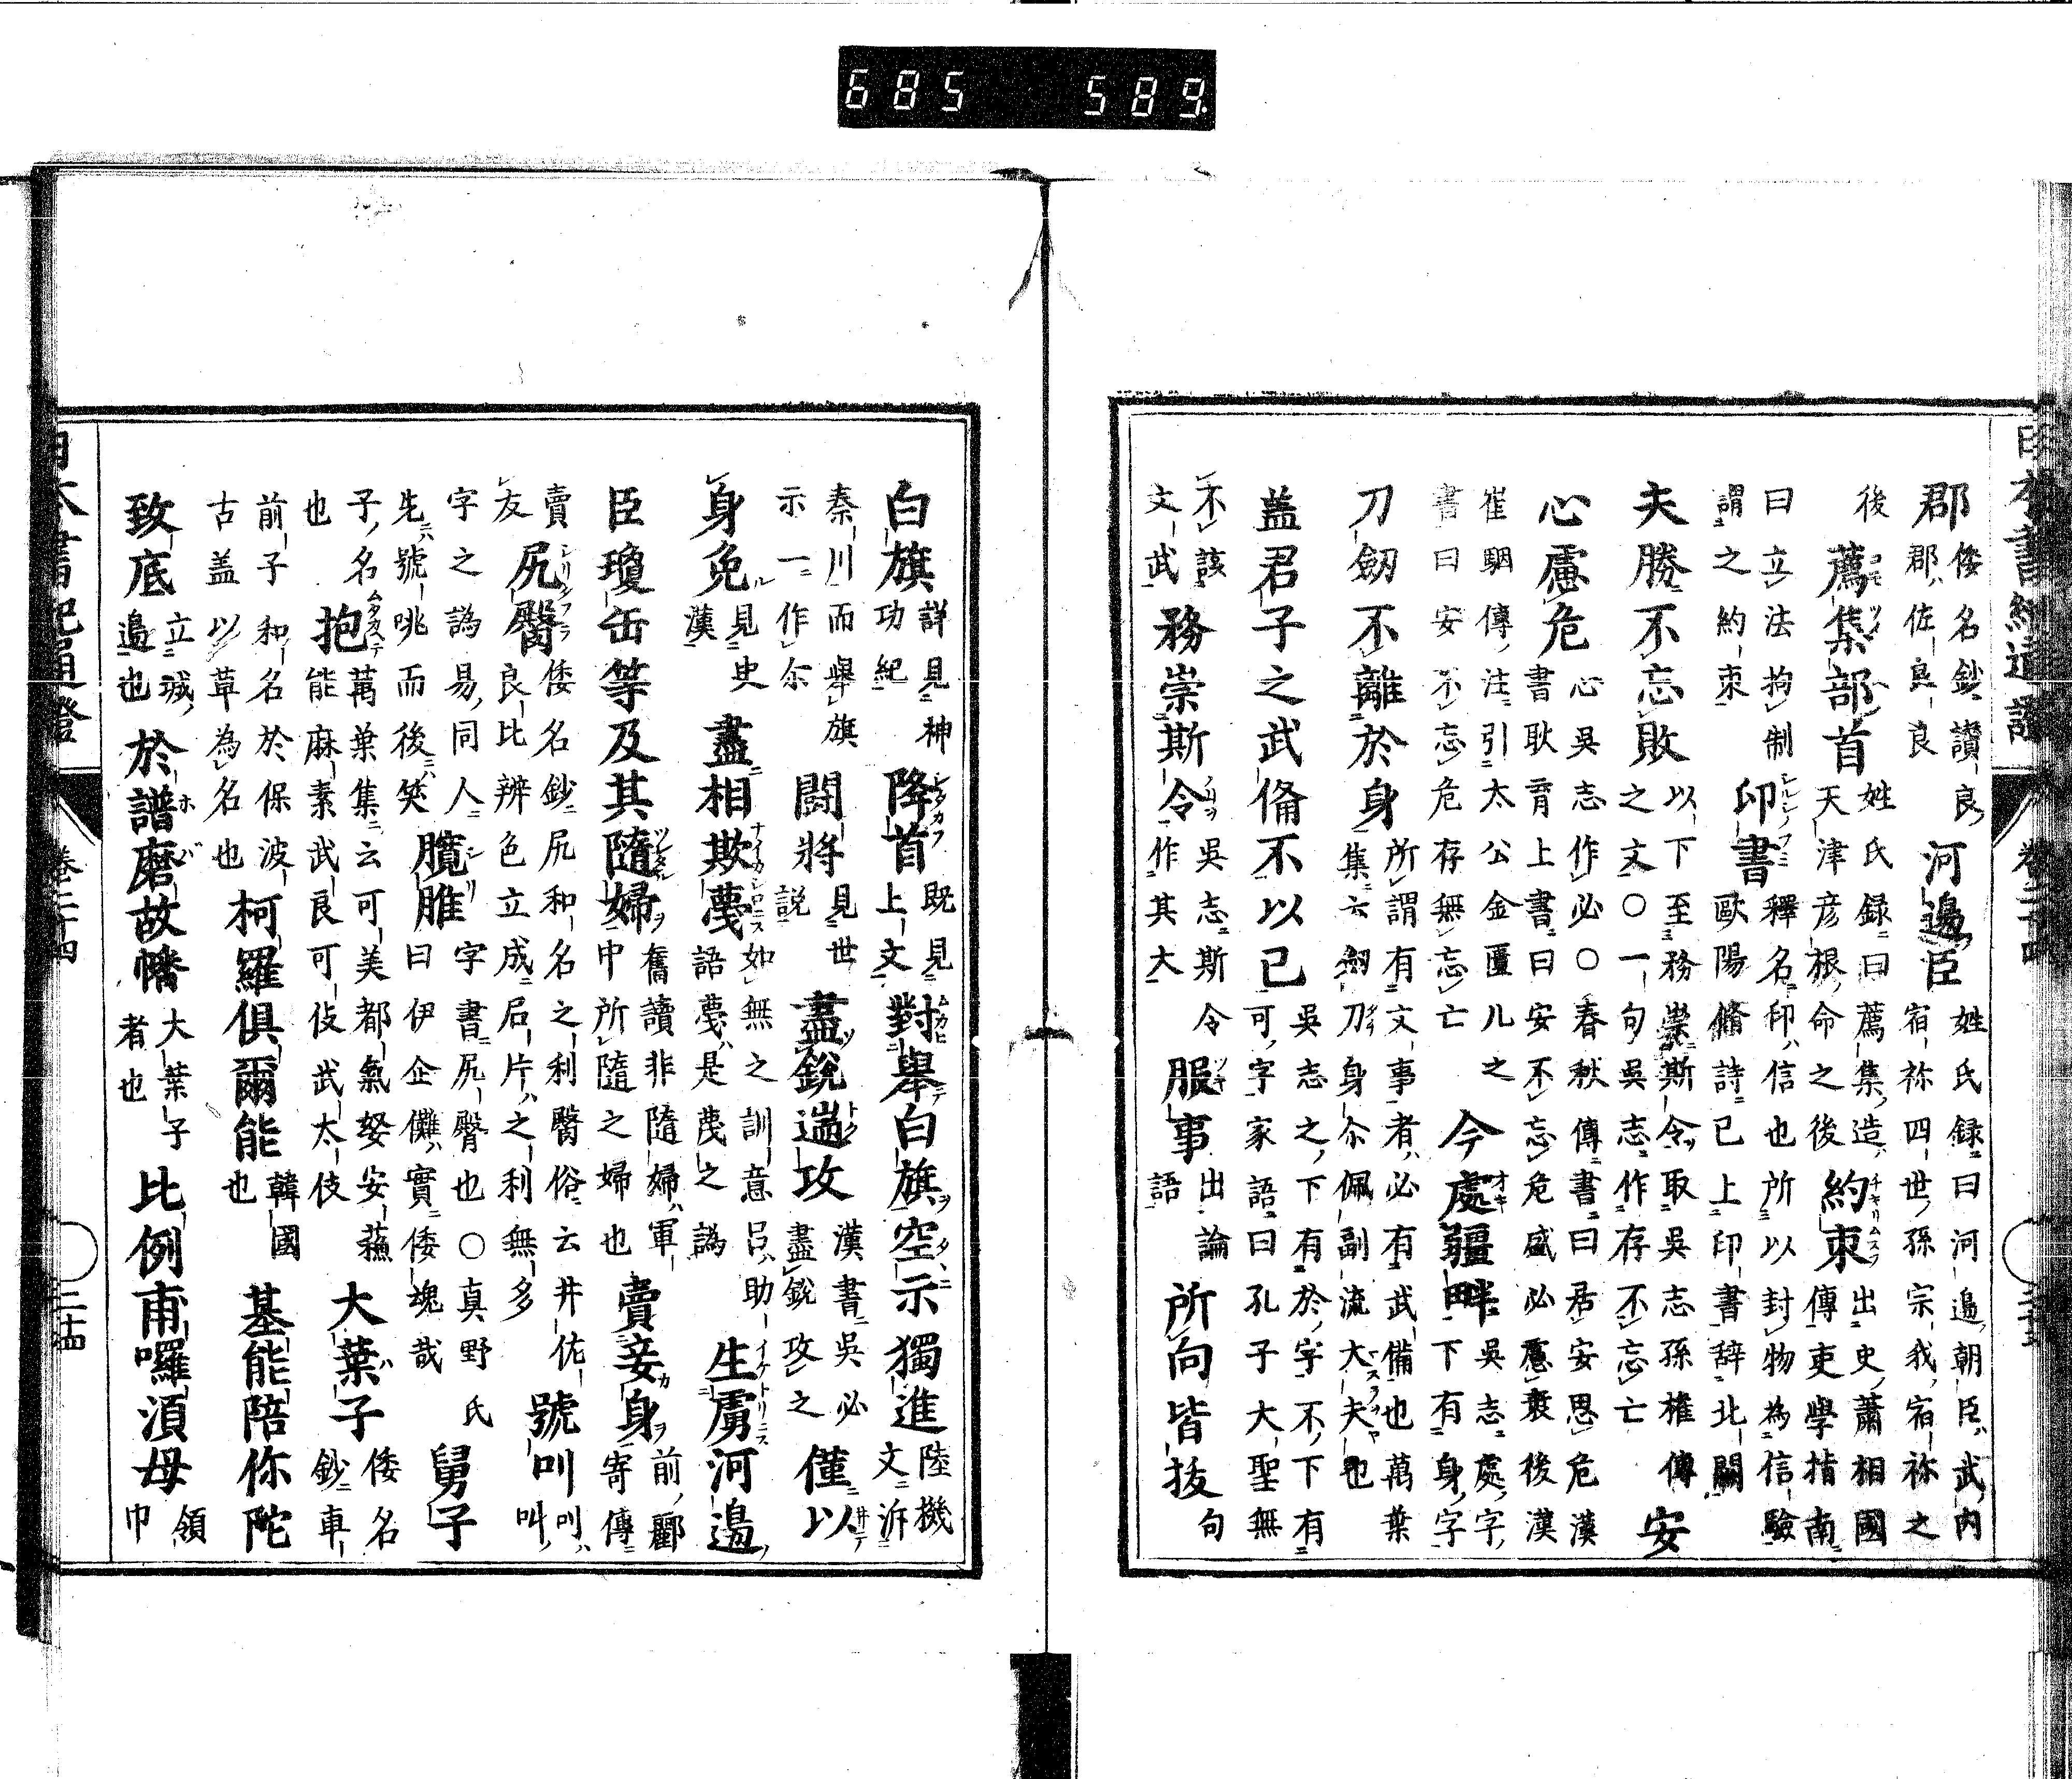 685 589
郡 倭名鈔讃良郡佐良良 河邊臣 姓氏録曰河邊朝臣武内宿祢四世孫宗我宿祢之
後 薦集部首 姓氏録曰薦集造天津彦根命之後 約束 出史蕭相國傳吏學指南
曰立法拘制謂之約束 印書 釋名印信也所以封物為信驗歐陽脩詩已上印書辞北闕
夫勝不忘敗 以下至務崇斯令取吳志孫権傳之文○一句吳志作存不忘亡 安
心慮危 心吳志作必○春秋傳書曰居安思危漢書耿育上書曰安不忘危盛必慮衰後漢
崔駰傳注引太公金匱曰書曰安不忘危存無忘亡 今處疆畔 吳志處字下有身字
刀劔不離於身 所謂有文事者必有武備也萬葉集六劔刀身尓佩副流大夫也
盖君子之武俻不以已 吳志之下有於字不下有可字家語曰孔子大聖無
不該文武 務崇斯令 吳志斯令作其大 服事 出論語 所向皆拔 句
日本書紀通證 巻二十四 三十四
白旗 詳見神功紀 降首 既見上文 對舉白旗空示獨進 陸機文泝
秦川而舉旗示一作尓 闘將 見世説 盡銳遄攻 漢書吳必盡銳攻之 僅以
身免 見史漢 盡相欺蔑 如無之訓意語蔑是蔑之譌呂助 生虜河邊
臣瓊缶等及其隨婦 舊讀非隨婦軍中所隨之婦也 賣妾身 前酈寄傳
賣友 尻臀 倭名鈔尻和名之利臀俗云井佐良比辨色立成㞍片之利無多 號叫 叫叫
字之譌易同人先號咷而後笑 臗脽 字書尻臀也○真野氏曰伊企儺實倭魂哉 舅子
子名也 抱 萬葉集云可美都氣努安蘓能麻素武良可伎武太伎 大葉子 倭名鈔車
前子和名於保波古盖以草為名也 柯羅俱爾能 韓國也 基能陪你陀
致底 立城邊也 於譜磨故幡 大葉子者也 比例甫囉湏母 領巾